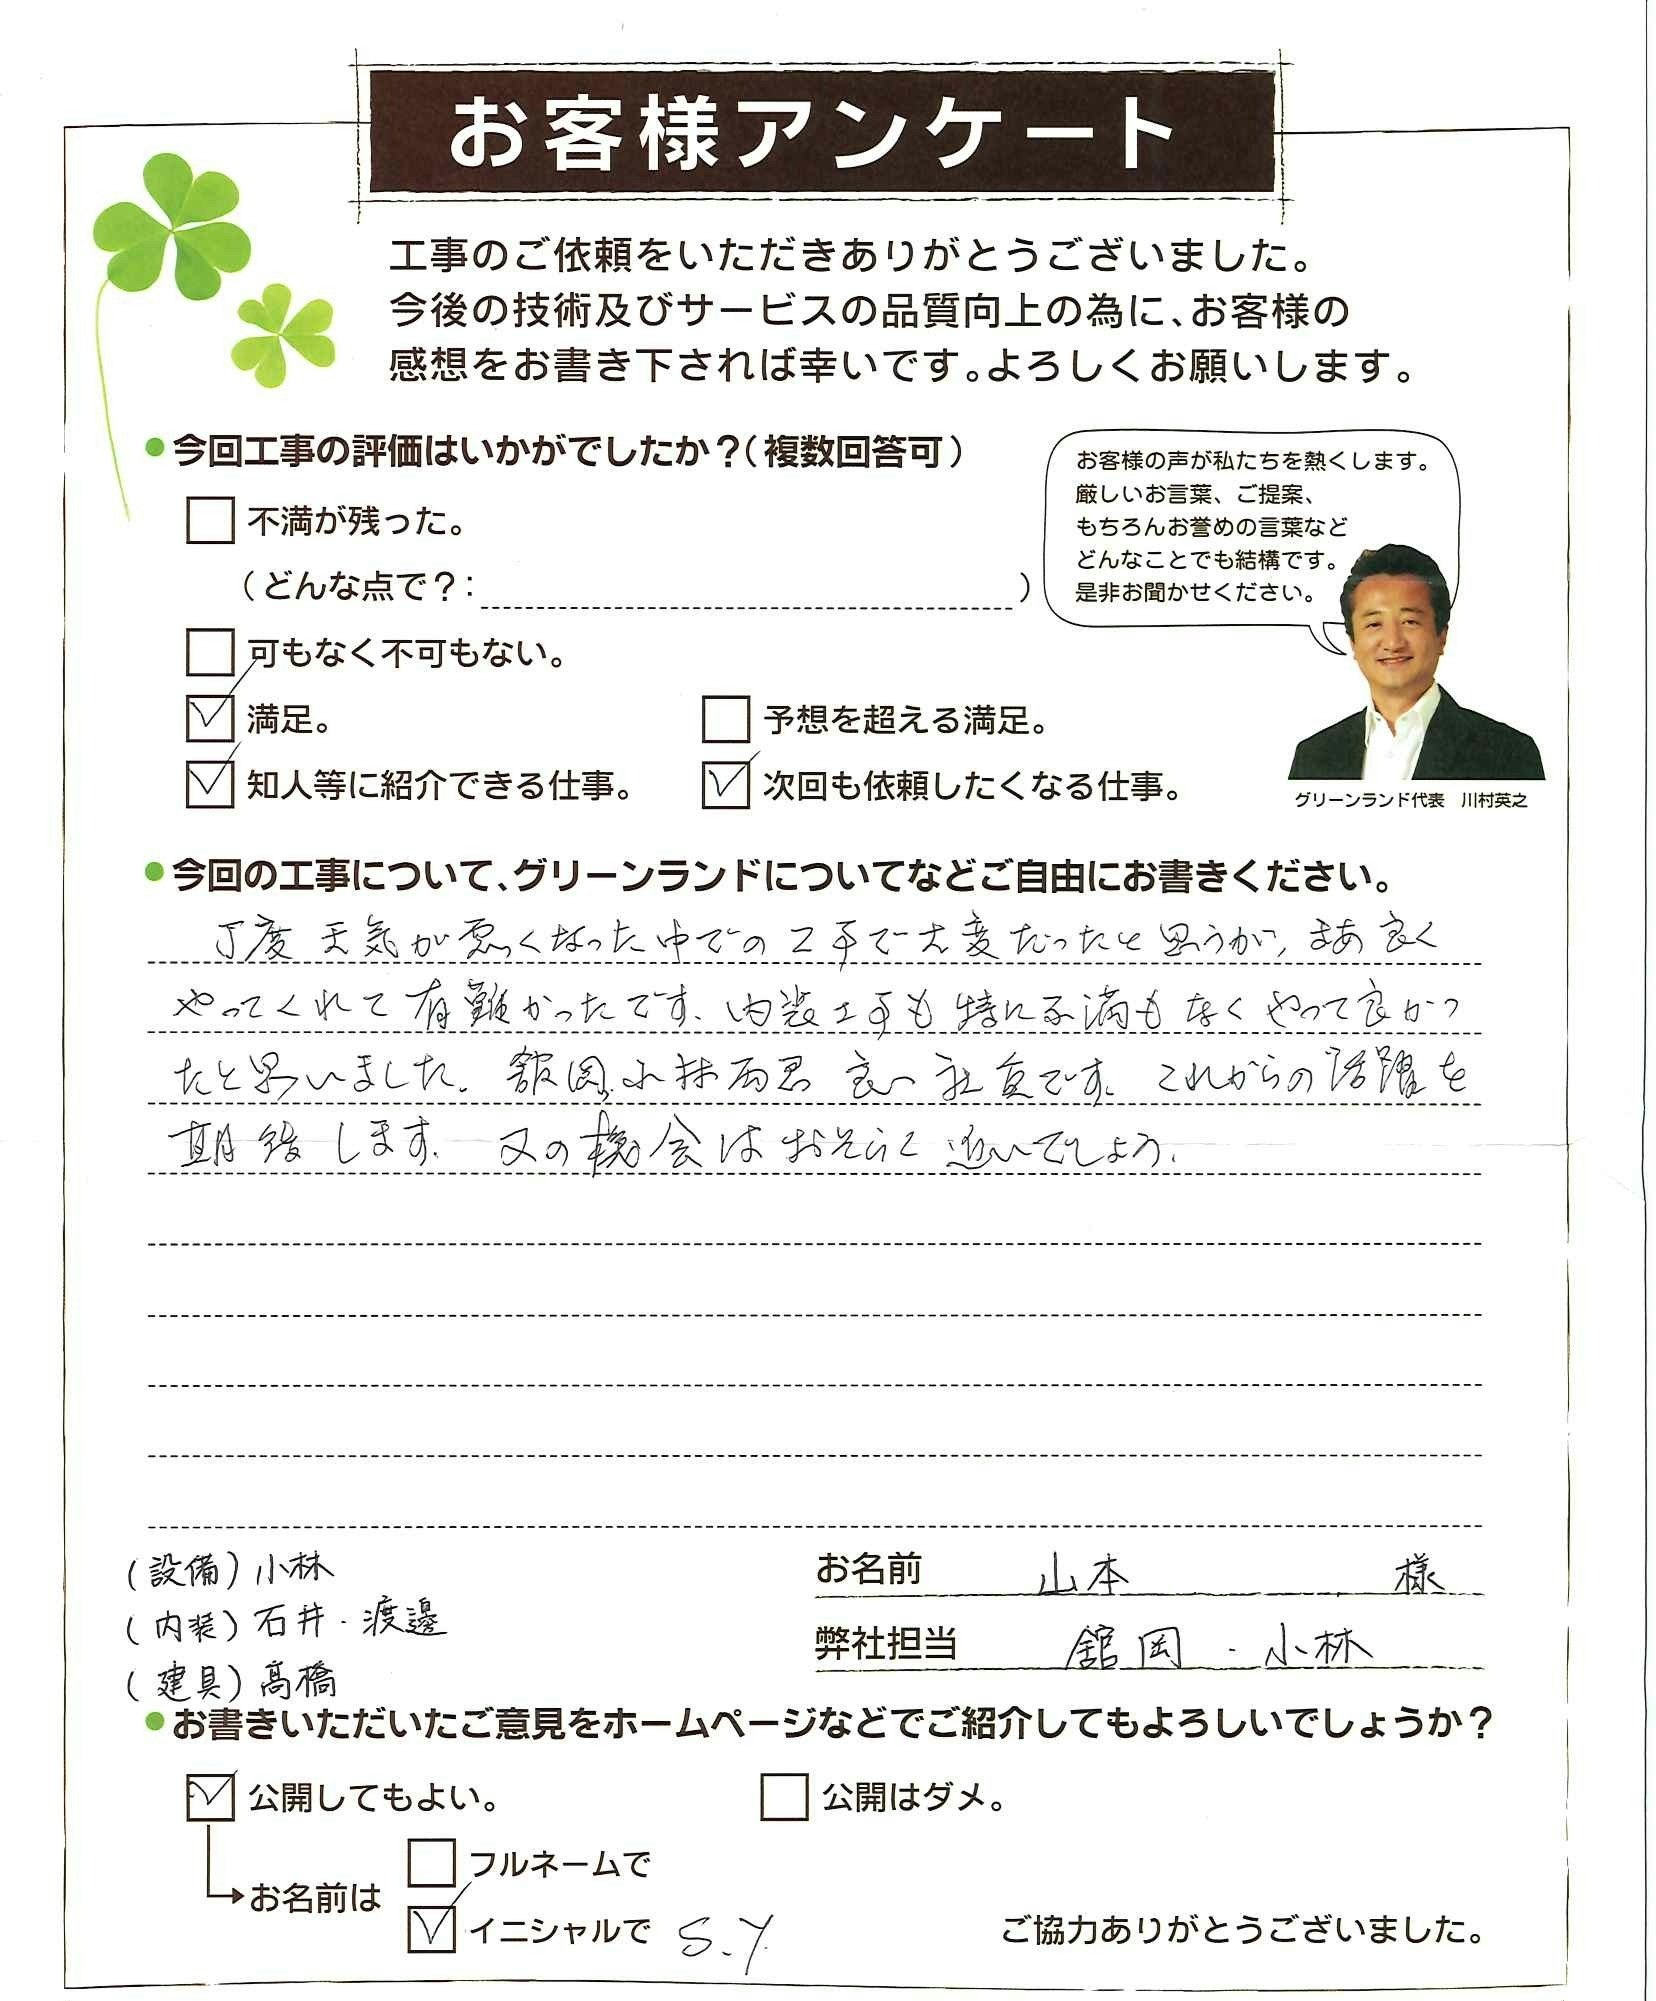 お客様アンケート
工事のご依頼をいただきありがとうございました。
今後の技術及びサービスの品質向上の為に、お客様の
感想をお書き下されば幸いです。よろしくお願いします。
●今回工事の評価はいかがでしたか？（複数回答可）
不満が残った。
（どんな点で？：　）
可もなく不可もない。
満足。
予想を超える満足。
知人等に紹介できる仕事。
次回も依頼したくなる仕事。
お客様の声が私たちを熱くします。
厳しいお言葉、ご提案、
もちろんお誉めの言葉など
どんなことでも結構です。
是非お聞かせください。
グリーンランド代表　川村英之
●今回の工事について、グリーンランドについてなどご自由にお書きください。
丁度天気が悪くなった中での工事で大変だったと思うが、まあ良く
やってくれて有難かったです。内装工事も特に不満もなくやって良かっ
たと思いました。舘岡、小林両君良い社員です。これからの活躍を
期待します。又の機会はおそらく近いでしょう。
（設備）小林
（内装）石井・渡邊
（建具）髙橋
お名前　山本　様
弊社担当　舘岡・小林
●お書きいただいたご意見をホームページなどでご紹介してもよろしいでしょうか？
公開してもよい。
公開はダメ。
お名前は
フルネームで
イニシャルで S.Y
ご協力ありがとうございました。